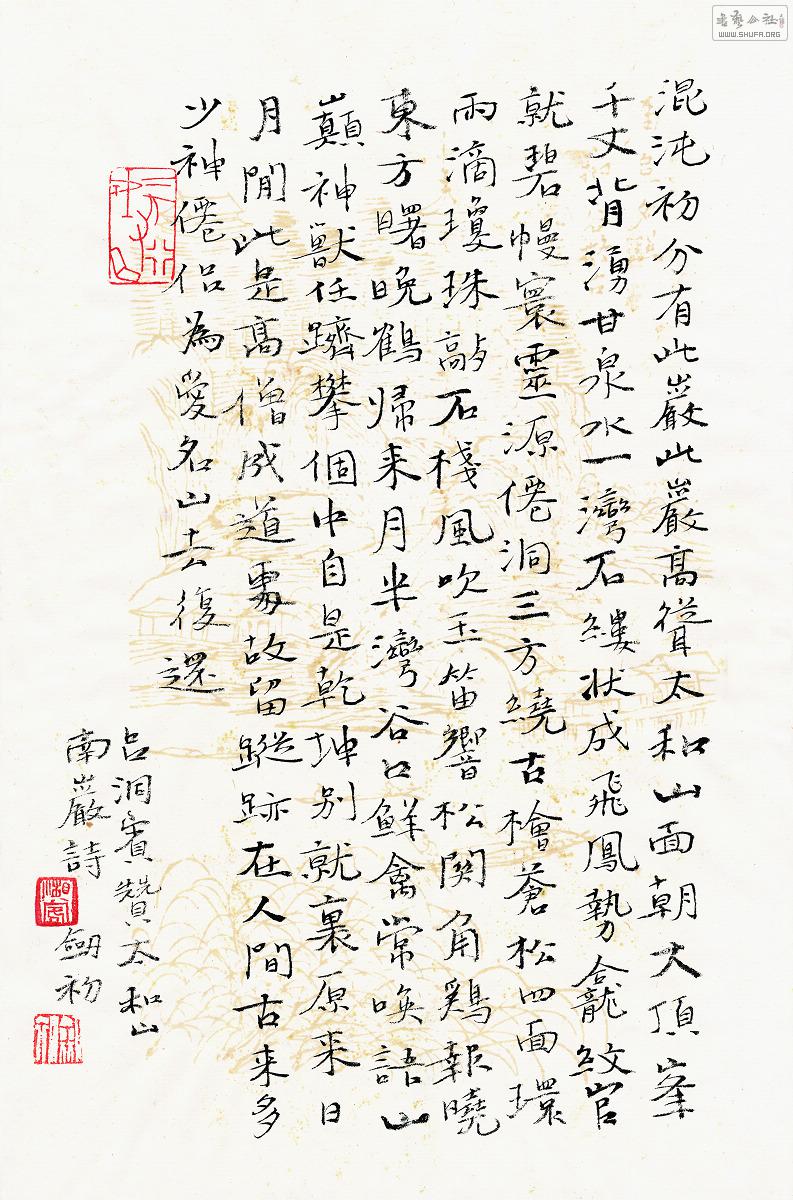 混沌初分有此巖此巖高聳太和山面朝大頂峯
千丈背湧甘泉水一灣石縷狀成飛鳳勢龕紋官
就碧幔寰靈源僊洞三方繞古檜蒼松四面環
雨滴瓊珠敲石棧風吹玉笛響松関角鷄報曉
東方曙晚鶴歸来月半灣谷口鮮禽常喚語山
巔神獸任躋攀個中自是乾坤別就裏原来日
月閒此是高僧成道處故留蹤跡在人間古来多
少神僊侣為愛名山去復還
吕洞賓贊太和山
南巖詩 劒初
書藝公社
WWW.SHUFA.ORG